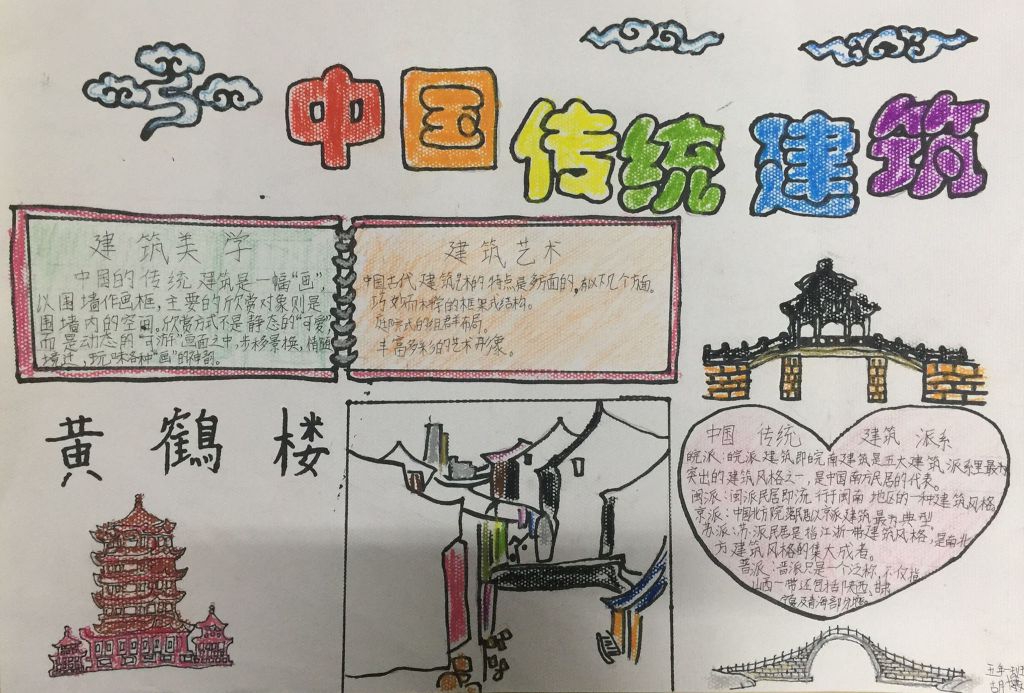 中国传统建筑
建筑美学
中国的传统建筑是一幅“画”,
以围墙作画框,主要的欣赏对象则是
围墙内的空间。欣赏方式不是静态的“可爱”
而是动态的“可游”画面之中,步移景换,情随
境迁,玩味各种“画”的神韵。
建筑艺术
中国古代建筑艺术的特点是多方面的,有以下几个方面。
巧妙而科学的框架式结构。
庭院式的组群布局。
丰富多彩的艺术形象。
黄鹤楼
中国传统建筑派系
皖派:皖派建筑即皖南建筑是五大建筑派系里最
突出的建筑风格之一,是中国南方民居的代表。
闽派:闽派民居即流行于闽南地区的一种建筑风格
京派:中国北方院落民居以京派建筑最为典型
苏派:苏派民居是指江浙一带建筑风格,是南北
方建筑风格的集大成者。
晋派:晋派只是一个泛称,不仅指
山西一带还包括陕西、甘
及青海部分
五年